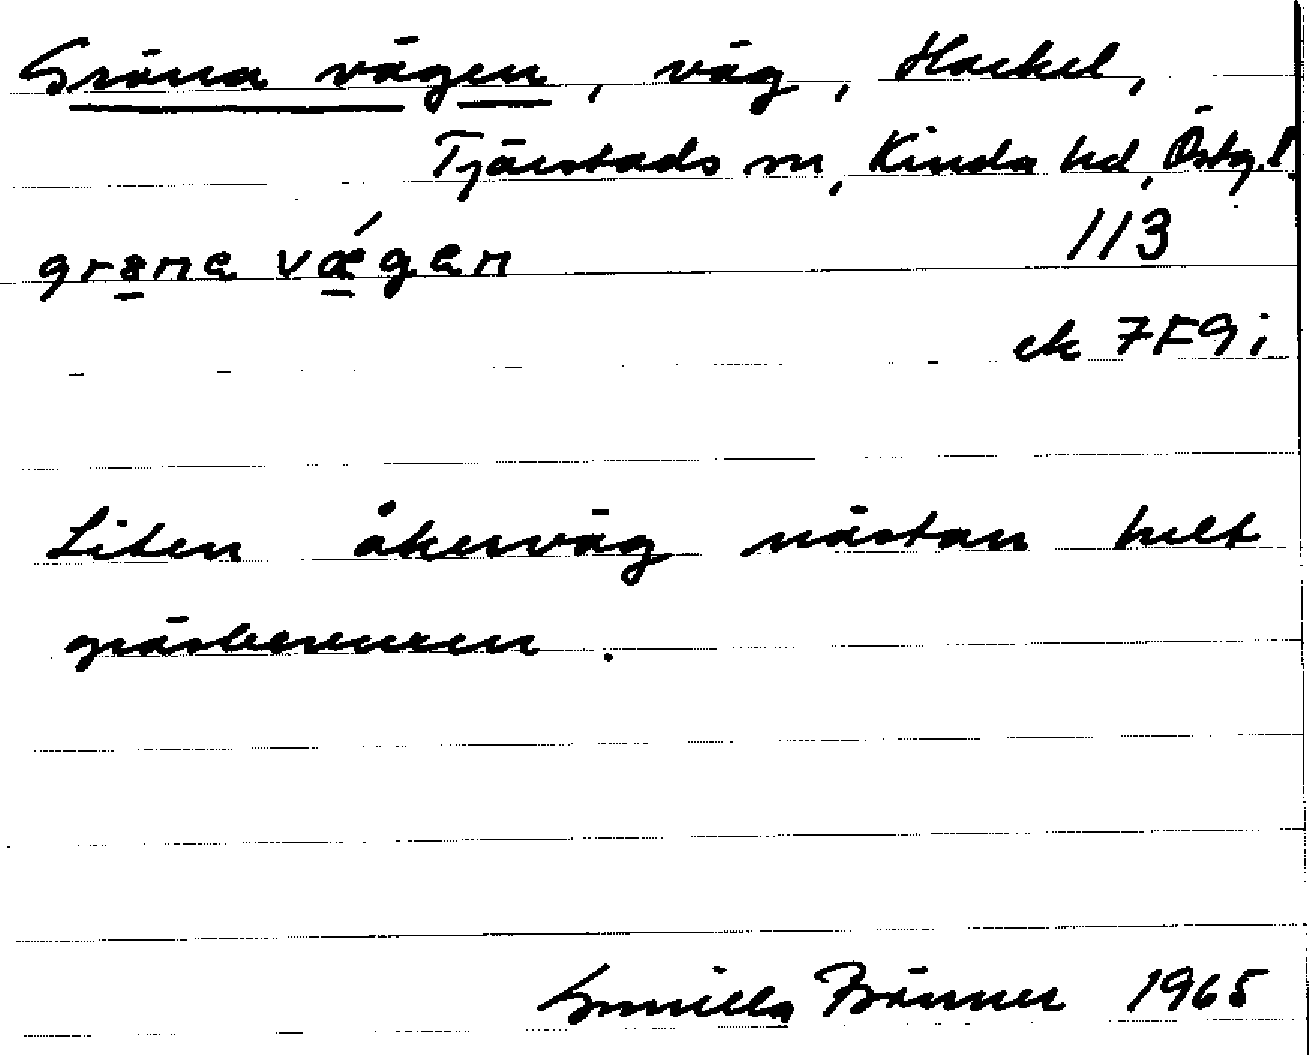 Gröna vägen, väg, Hackel,
Tjärstads sn, Kinda hd, Östg. l
grøna vǽgen
113
ek 7F9i
Liten åkerväg nästan helt
gräsbevuxen.
Gunilla Brönner 1965